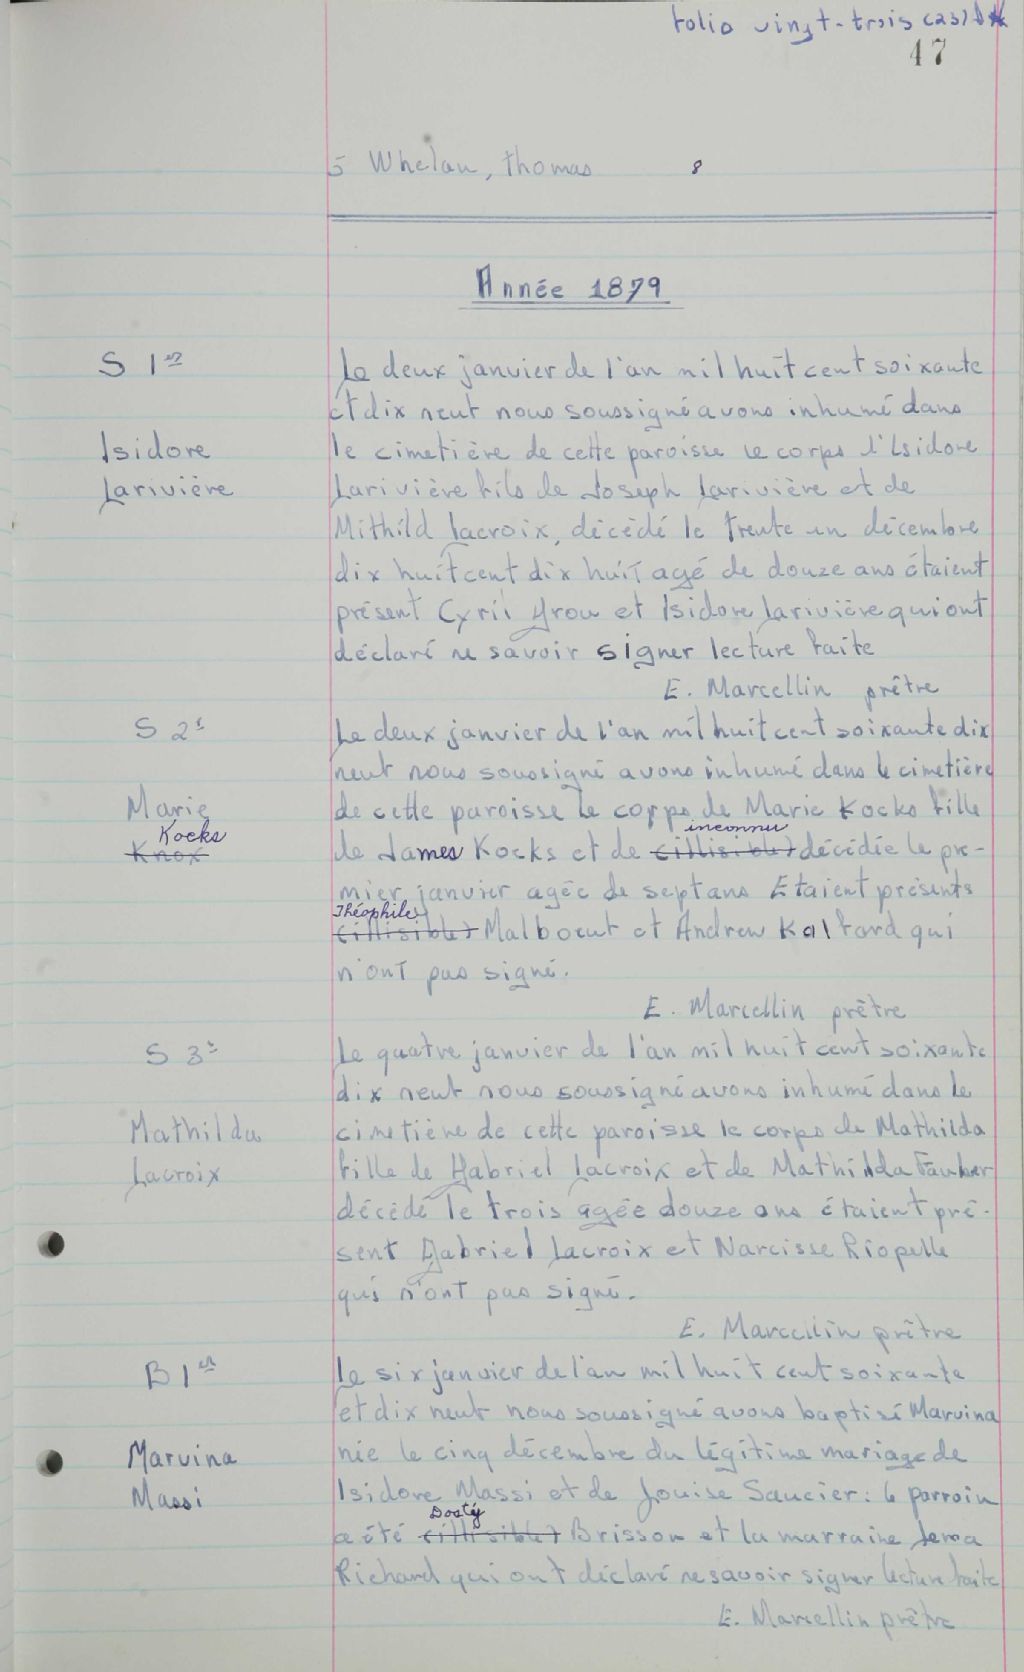 folio vingt-trois (23)
47
5 Whelan, Thomas 8
Année 1879
S 1er
Isidore
Larivière
Le deux janvier de l'an mil huit cent soixante
et dix neuf nous soussigné avons inhumé dans
le cimetière de cette paroisse le corps d'Isidore
Larivière fils de Joseph Larivière et de
Mithild Lacroix, décédé le trente un décembre
dix huit cent dix huit agé de douze ans étaient
présent Cyril Grou et Isidore Larivière qui ont
déclaré ne savoir signer lecture faite
E. Marcellin prêtre
S 2e
Marie
Kocks
Knox
Le deux janvier de l'an mil huit cent soixante dix
neuf nous soussigné avons inhumé dans le cimetière
de cette paroisse le corps de Marie Kocks fille
inconnu
de James Kocks et de (illisible) décédée le pre-
mier janvier agée de sept ans Etaient présents
Théophile
(illisible) Malboeuf et Andrew Kalfard qui
n'ont pas signé.
E. Marcellin prêtre
S 3e
Mathilda
Lacroix
Le quatre janvier de l'an mil huit cent soixante
dix neuf nous soussigné avons inhumé dans le
cimetière de cette paroisse le corps de Mathilda
fille de Gabriel Lacroix et de Mathilda Fauber
décédé le trois agée douze ans étaient pré-
sent Gabriel Lacroix et Narcisse Riopelle
qui n'ont pas signé.
E. Marcellin prêtre
B 1er
Marvina
Massi
Le six janvier de l'an mil huit cent soixante
et dix neuf nous soussigné avons baptisé Marvina
née le cinq décembre du légitime mariage de
Isidore Massi et de Louise Saucier: le parrain
Dosty
a été (illisible) Brisson et la marraine Lema
Richard qui ont déclaré ne savoir signer lecture faite
E. Marcellin prêtre